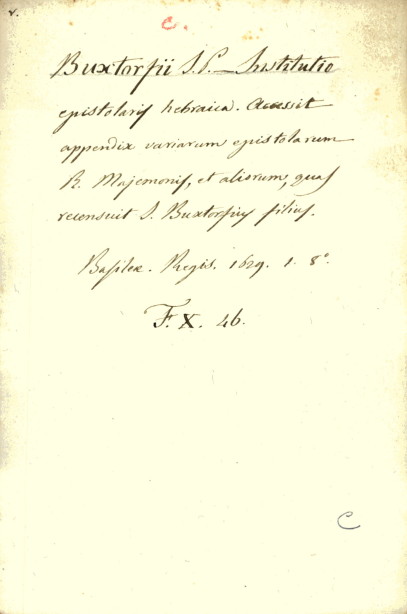 v.
C.
Buxtorfii J. P. Institutio
epistolaris hebraica. Accessit
appendix variarum epistolarum
R. Majemonis, et aliorum, quas
recensuit J. Buxtorfius filius.
Basileæ. Regis. 1629. 1. 8°.
F. X. 46.
C